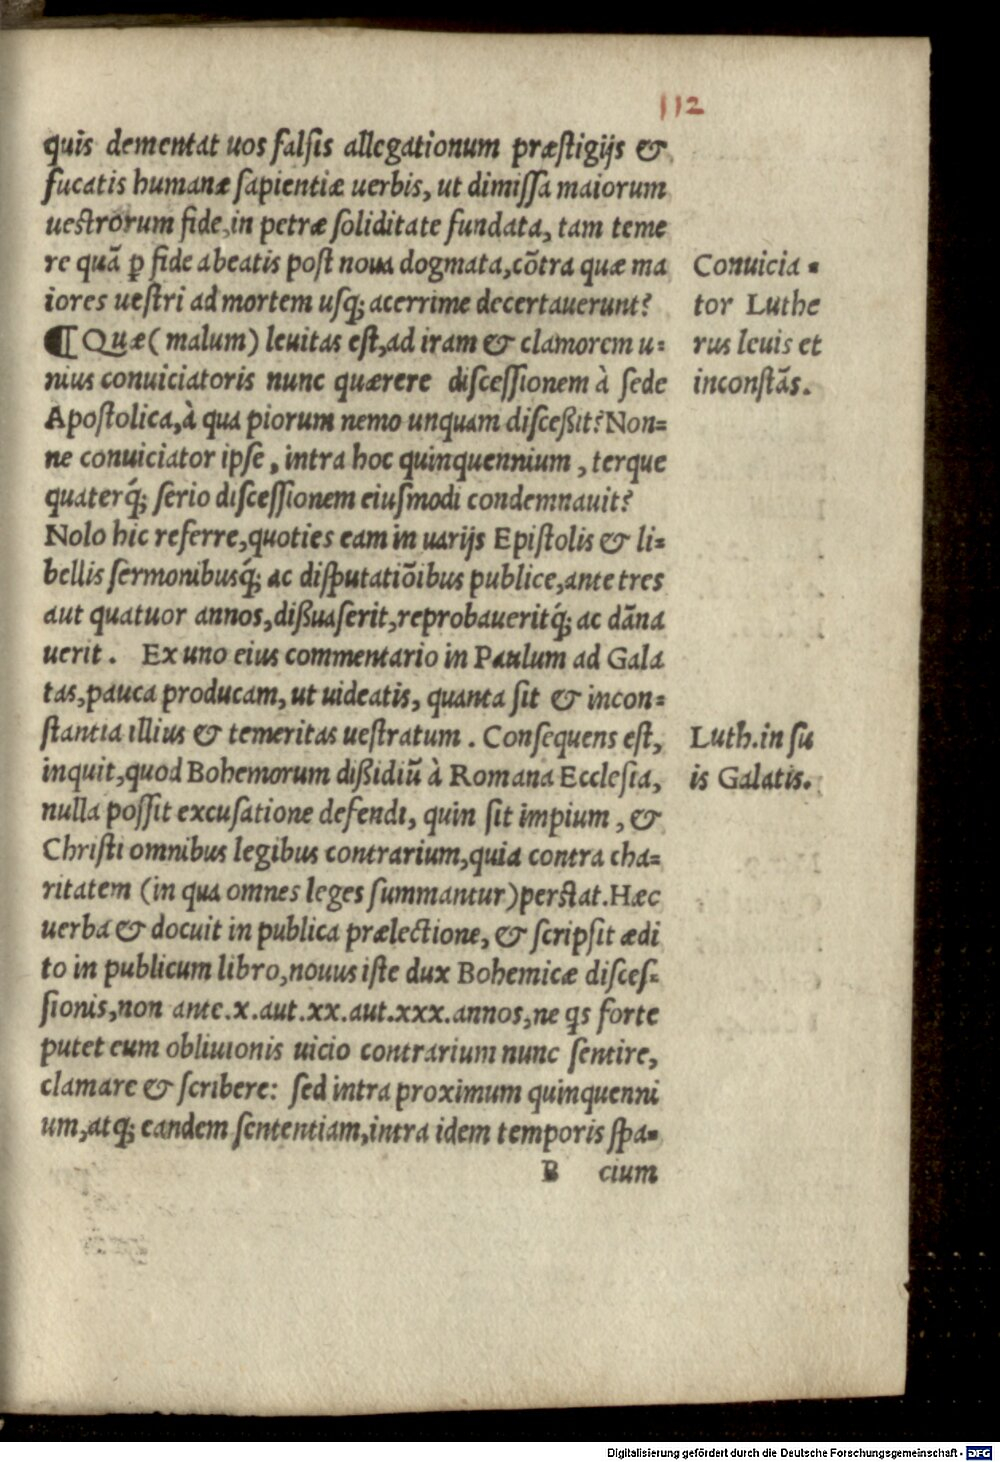 112
quis dementat uos falsis allegationum præstigijs &
fucatis humanæ sapientiæ uerbis, ut dimissa maiorum
uestrorum fide, in petræ soliditate fundata, tam teme
re quā ꝑ fide abeatis post noua dogmata, cōtra quæ ma
iores uestri ad mortem usq; acerrime decertauerunt?
¶ Quæ (malum) leuitas est, ad iram & clamorem u-
nius conuiciatoris nunc quærere discessionem à sede
Apostolica, à qua piorum nemo unquam disceßit? Non-
ne conuiciator ipse, intra hoc quinquennium, terque
quaterq́; serio discessionem eiusmodi condemnauit?
Nolo hic referre, quoties eam in uarijs Epistolis & li-
bellis sermonibusq́; ac disputatiōibus publice, ante tres
aut quatuor annos, dißuaserit, reprobaueritq́; ac dāna
uerit. Ex uno eius commentario in Paulum ad Gala
tas, pauca producam, ut uideatis, quanta sit & incon-
stantia illius & temeritas uestratum. Consequens est,
inquit, quod Bohemorum dißidiū à Romana Ecclesia,
nulla possit excusatione defendi, quin sit impium, &
Christi omnibus legibus contrarium, quia contra cha-
ritatem (in qua omnes leges summantur) perstat. Hæc
uerba & docuit in publica prælectione, & scripsit ædi
to in publicum libro, nouus iste dux Bohemicæ disces-
sionis, non ante .x. aut .xx. aut .xxx. annos, ne qs forte
putet eum obliuionis uicio contrarium nunc sentire,
clamare & scribere: sed intra proximum quinquenni
um, atq; eandem sententiam, intra idem temporis spa-
B cium
Conuicia-
tor Luthe
rus leuis et
inconstās.
Luth. in su
is Galatis.
Digitalisierung gefördert durch die Deutsche Forschungsgemeinschaft - DFG